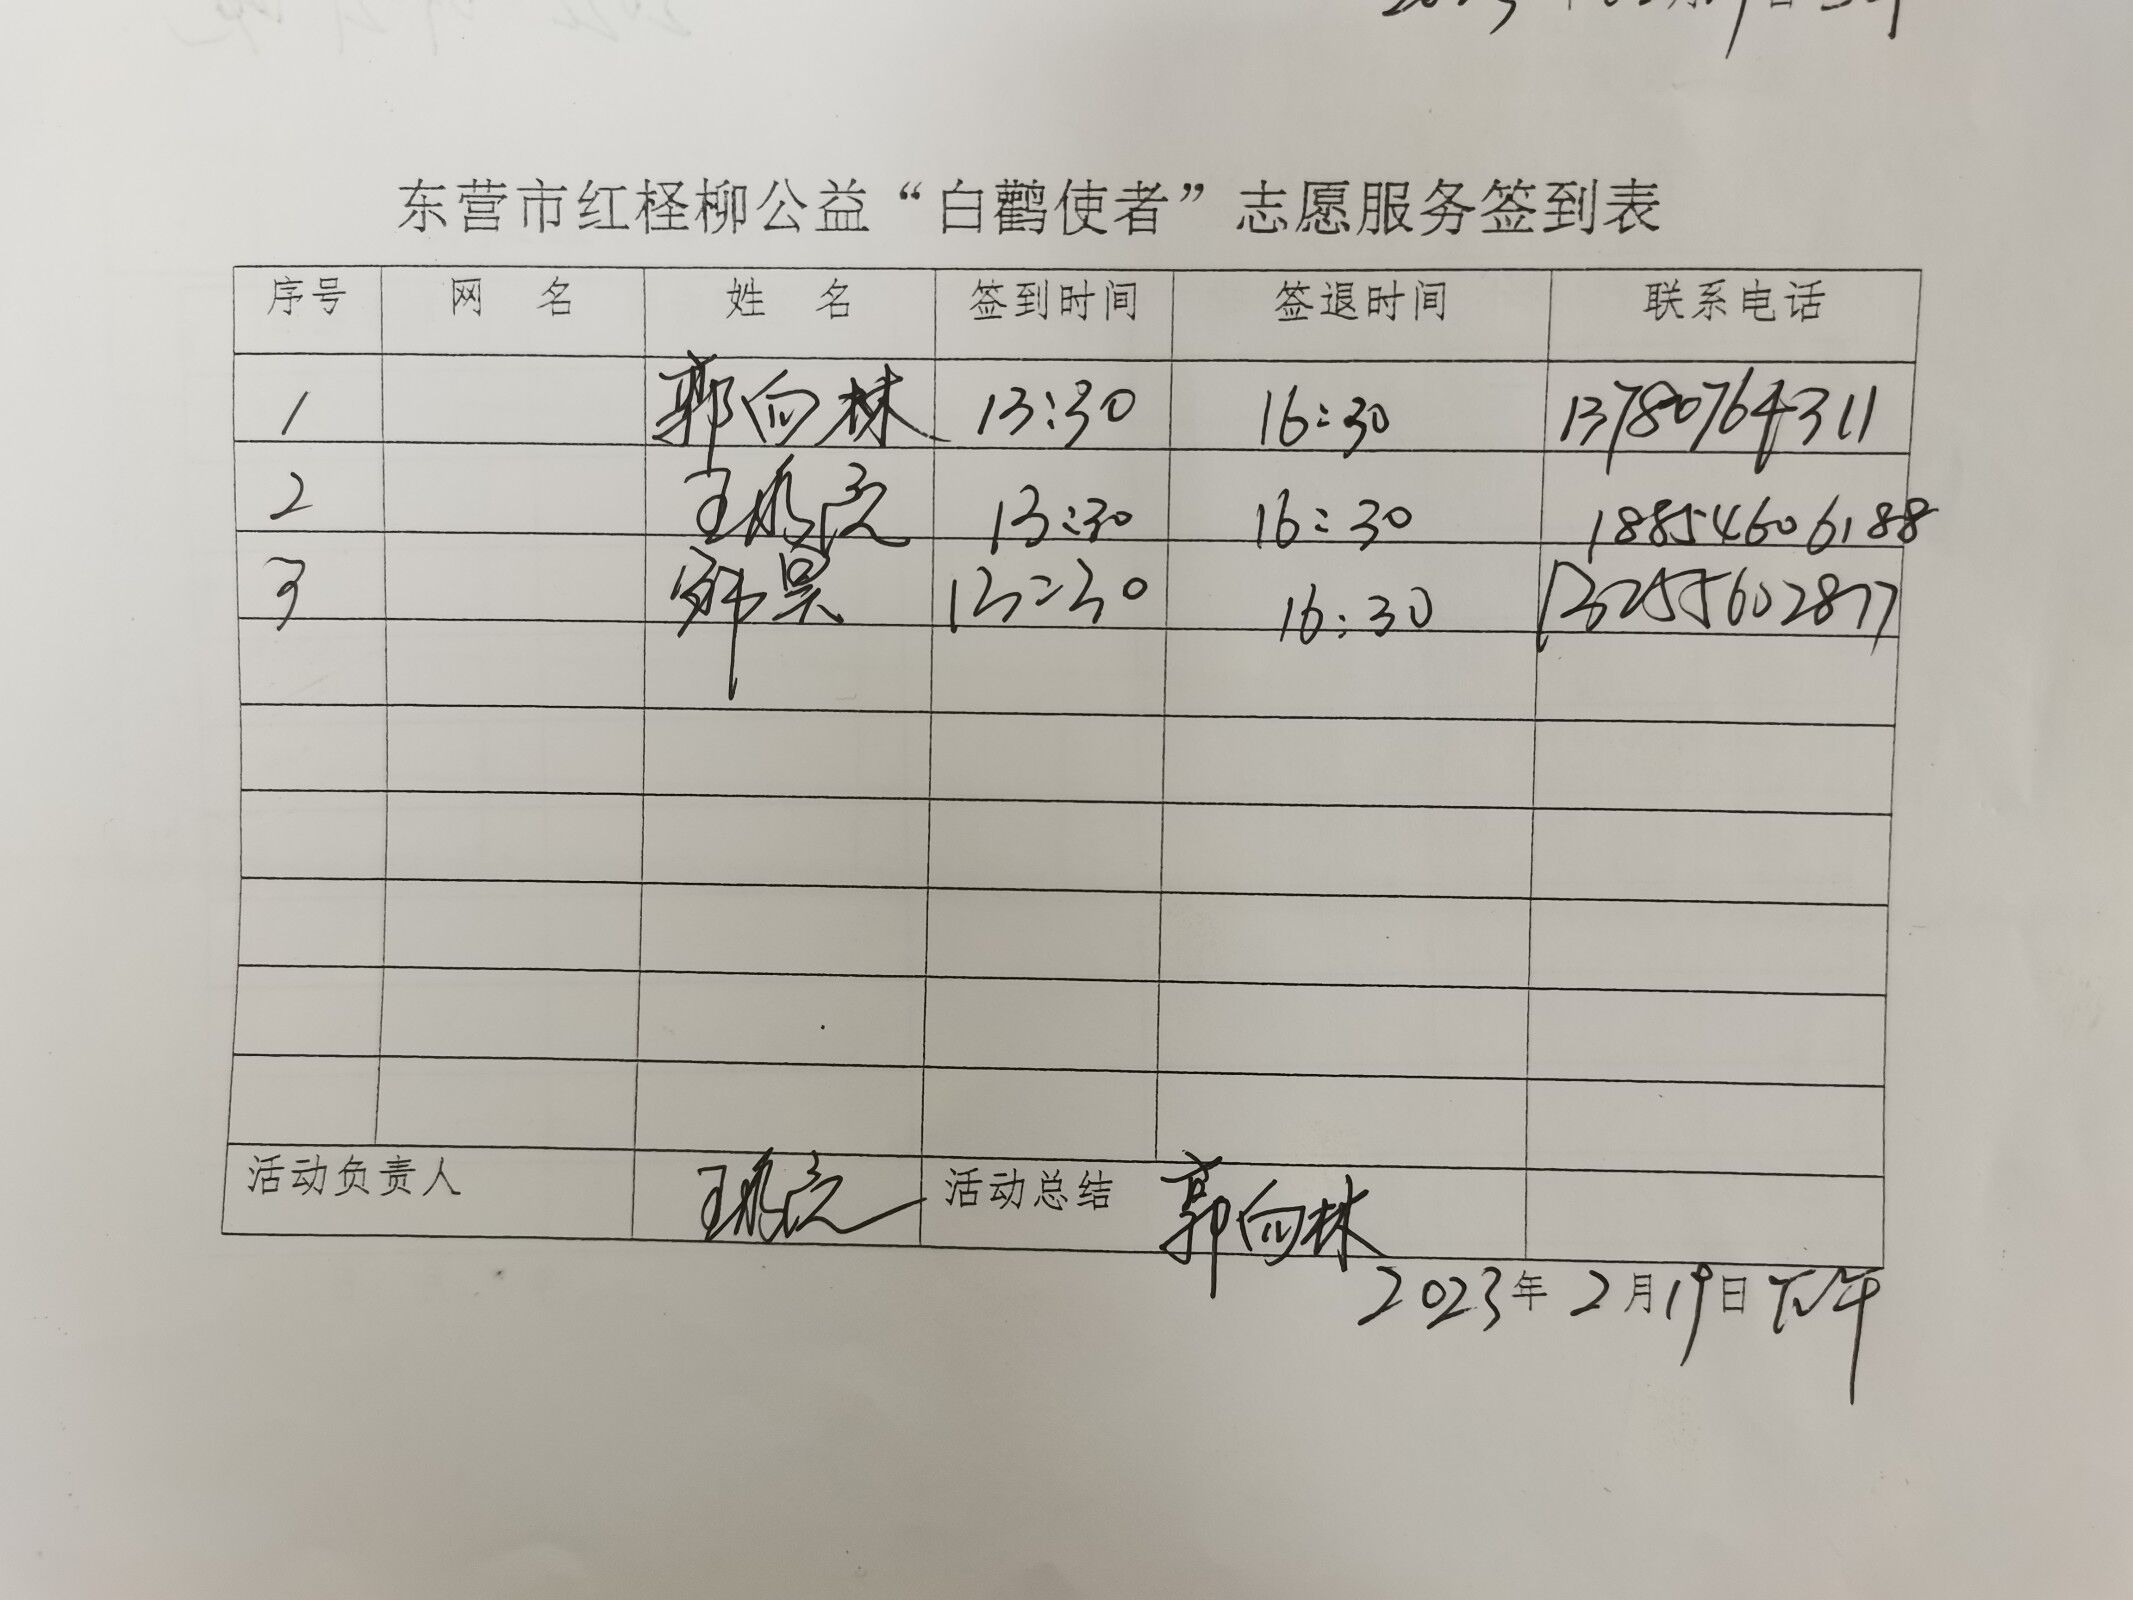 东营市红柽柳公益“白鹳使者”志愿服务签到表
序号 网 名 姓 名 签到时间 签退时间 联系电话
1 郭向林 13:30 16:30 13780764311
2 王 13:30 16:30 18854606188
3 昊 13:30 16:30 13255602877
活动负责人 王 活动总结 郭向林
2023年2月19日下午